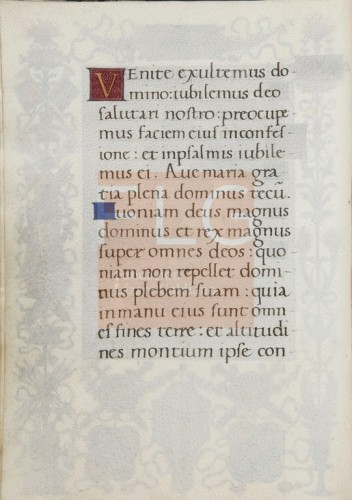 VEnite exultemus do
mino: iubilemus deo
salutari nostro: preocupe
mus faciem eius inconfes
sione: et inpsalmis iubile
mus ei. Aue maria gra
tia plena dominus tecū.
Quoniam deus magnus
dominus et rex magnus
super omnes deos: quo
niam non repellet domi
nus plebem suam: quia
inmanu eius sunt omn
es fines terre: et altitudi
nes montium ipse con
TLG